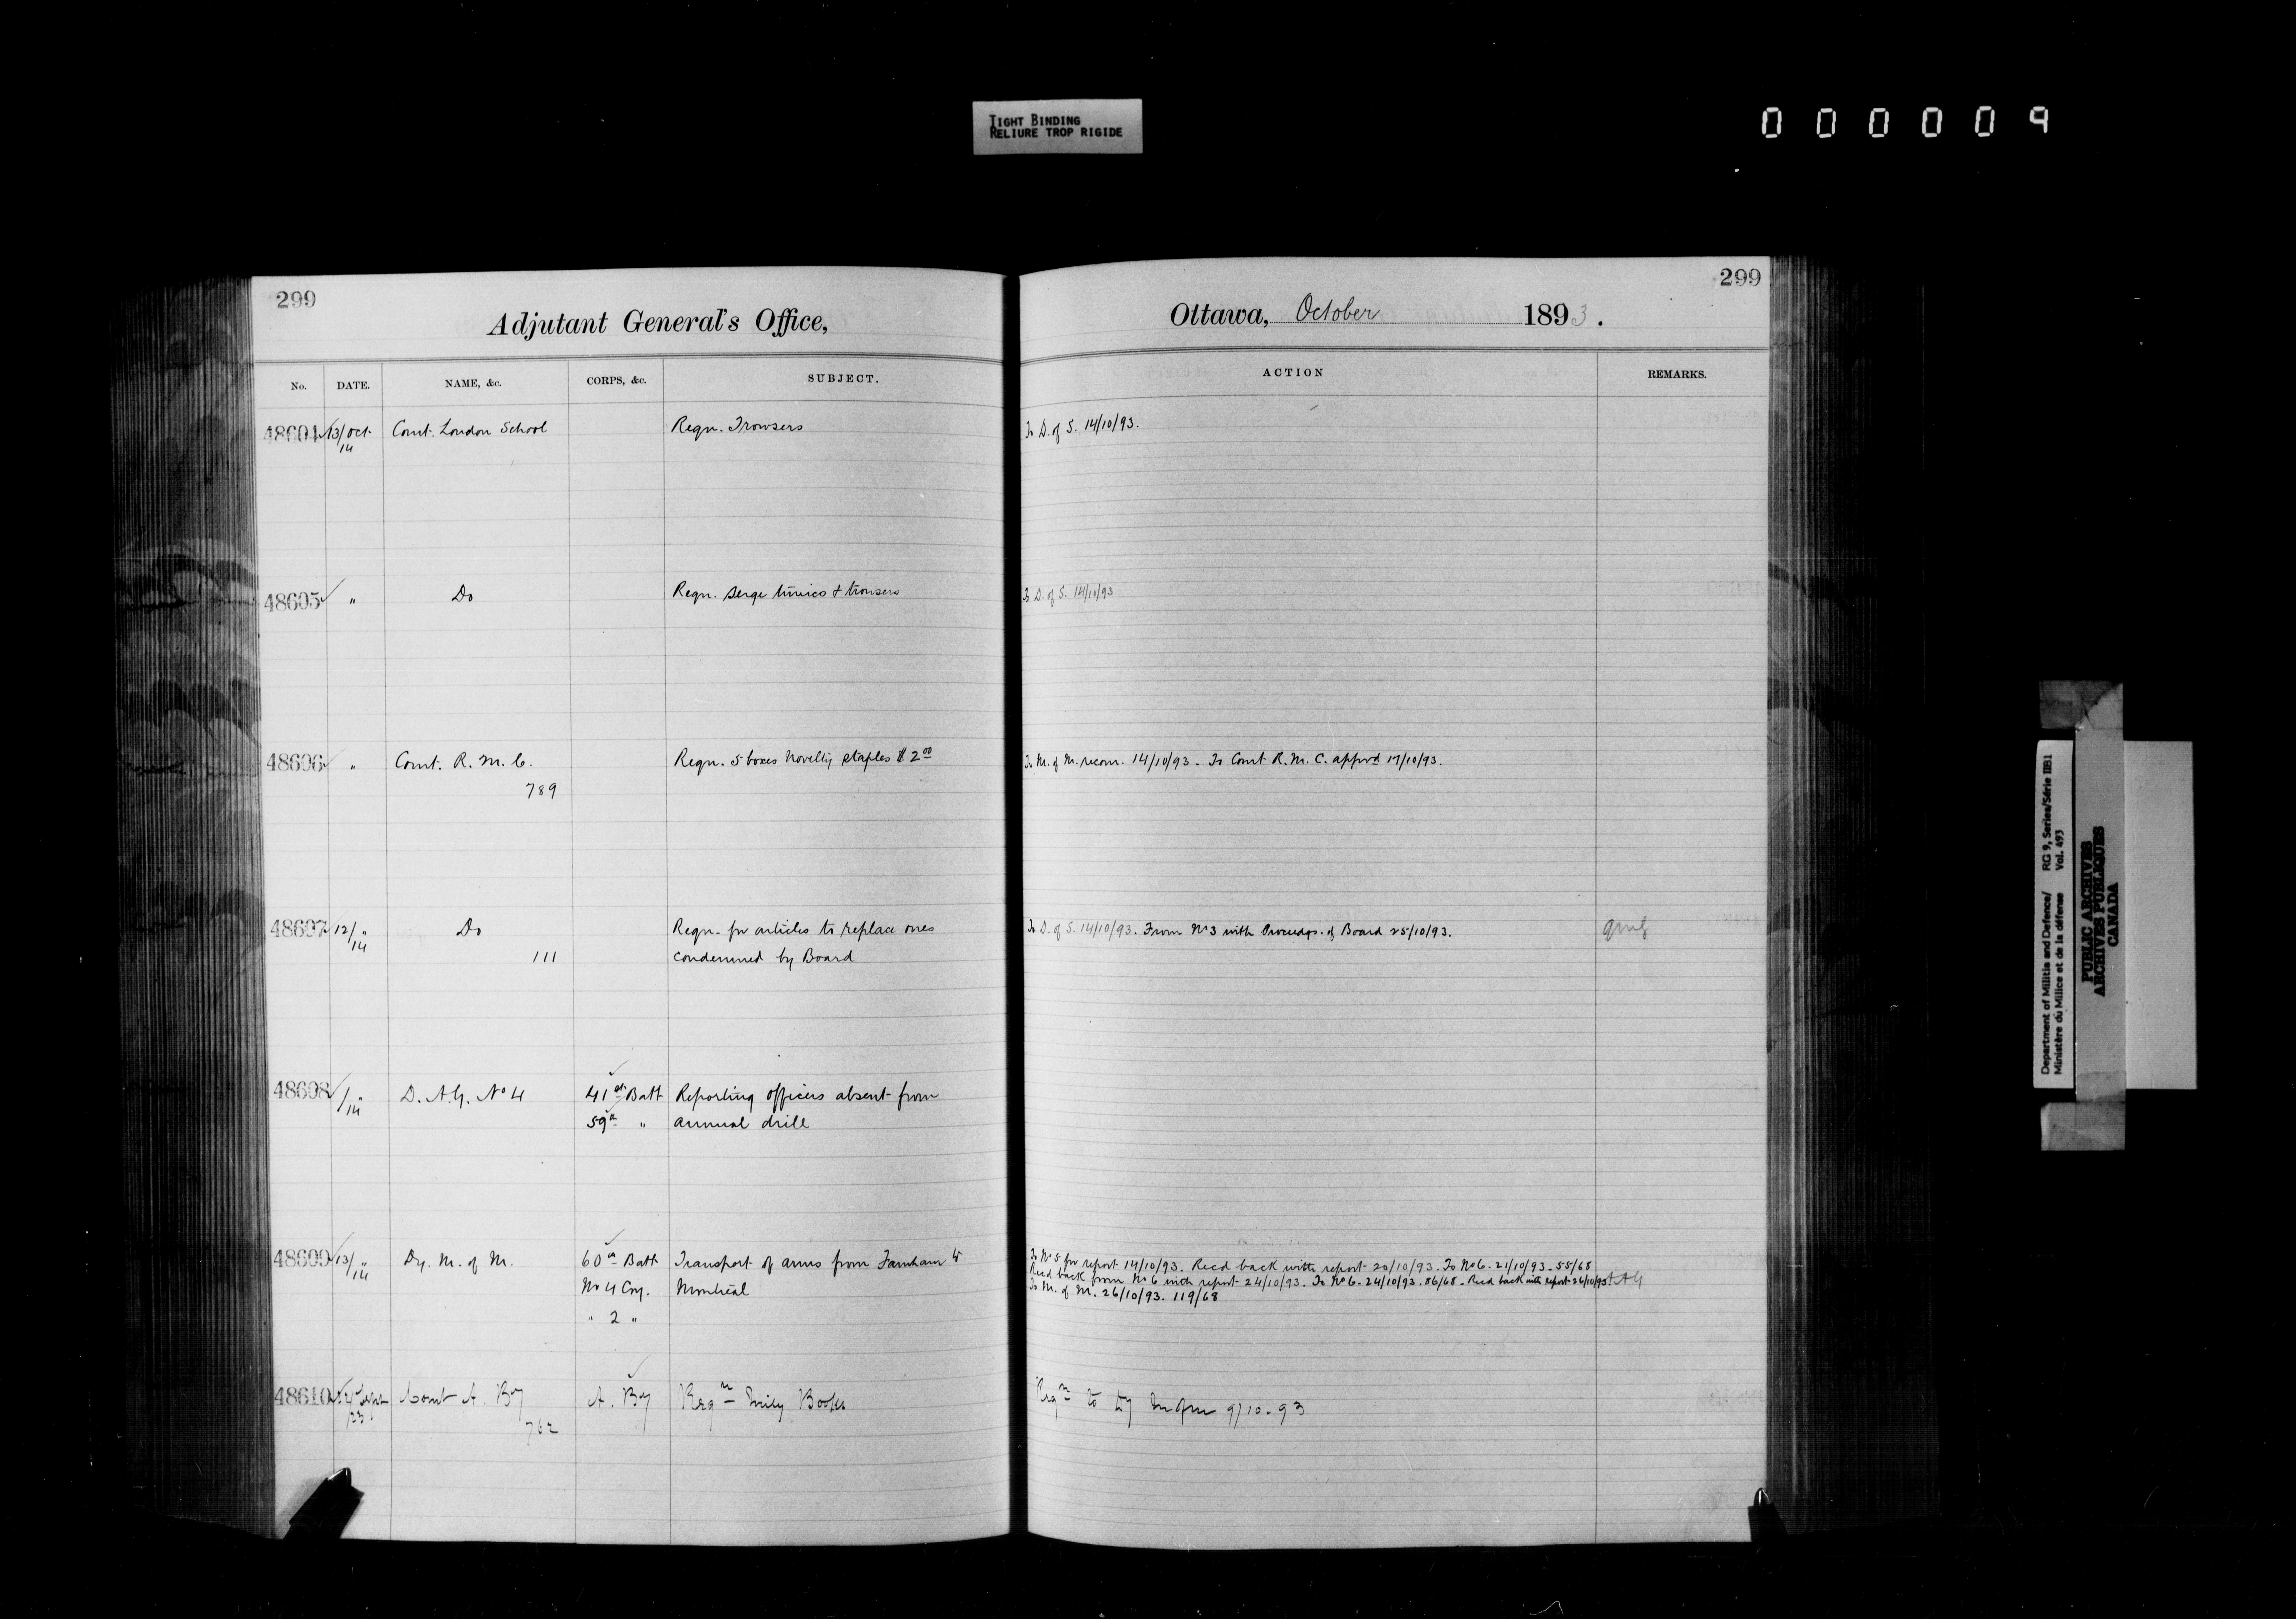 TIGHT BINDING
RELIURE TROP RIGIDE
000009
299
Adjutant General's Office,
No. DATE. NAME, &c. CORPS, &c. SUBJECT.
48604 13/Oct 14 Comt. London School Reqn. Trowsers
48605 " Do Reqn. Serge tunics & trousers
48606 " Comt. R. M. C. Reqn. 5 boxes Novelty staples $2.00
789
48607 12/" 14 Do Reqn. for articles to replace ones
111 condemned by Board
48608 /" 14 D. A. G. No 4 41st Batt Reporting officers absent from
59th " annual drill
48609 13/" 14 Dy. M. of M. 60th Batt Transport of arms from Farnham to
No 4 Coy. Montreal
" 2 "
48610 Sept Comt A. By A. By Reqn Books
762
299
Ottawa, October 1893.
ACTION REMARKS.
To D. of S. 14/10/93.
To D. of S. 14/10/93
To M. of M. recom. 14/10/93. To Comt R. M. C. apprvd 17/10/93.
To D. of S. 14/10/93. From No 3 with Proceedgs. of Board 25/10/93.
To No 5 for report 14/10/93. Recd back with report 20/10/93. To No 6. 21/10/93. 55/68
Recd back from No 6 with report 24/10/93. To No 6. 24/10/93. 86/68. Recd back with report 26/10/93 AG
To M. of M. 26/10/93. 119/68
Reqn to 9/10.93
Department of Militia and Defence/ RG 9, Series/Série IIB1
Ministère du Milice et de la défense Vol. 493
PUBLIC ARCHIVES
ARCHIVES PUBLIQUES
CANADA